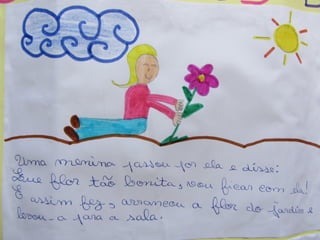 Uma menina passou por ela e disse:
Que flor tão bonita, vou ficar com ela!
E assim fez, arrancou a flor do jardim e
levou-a para a sala.